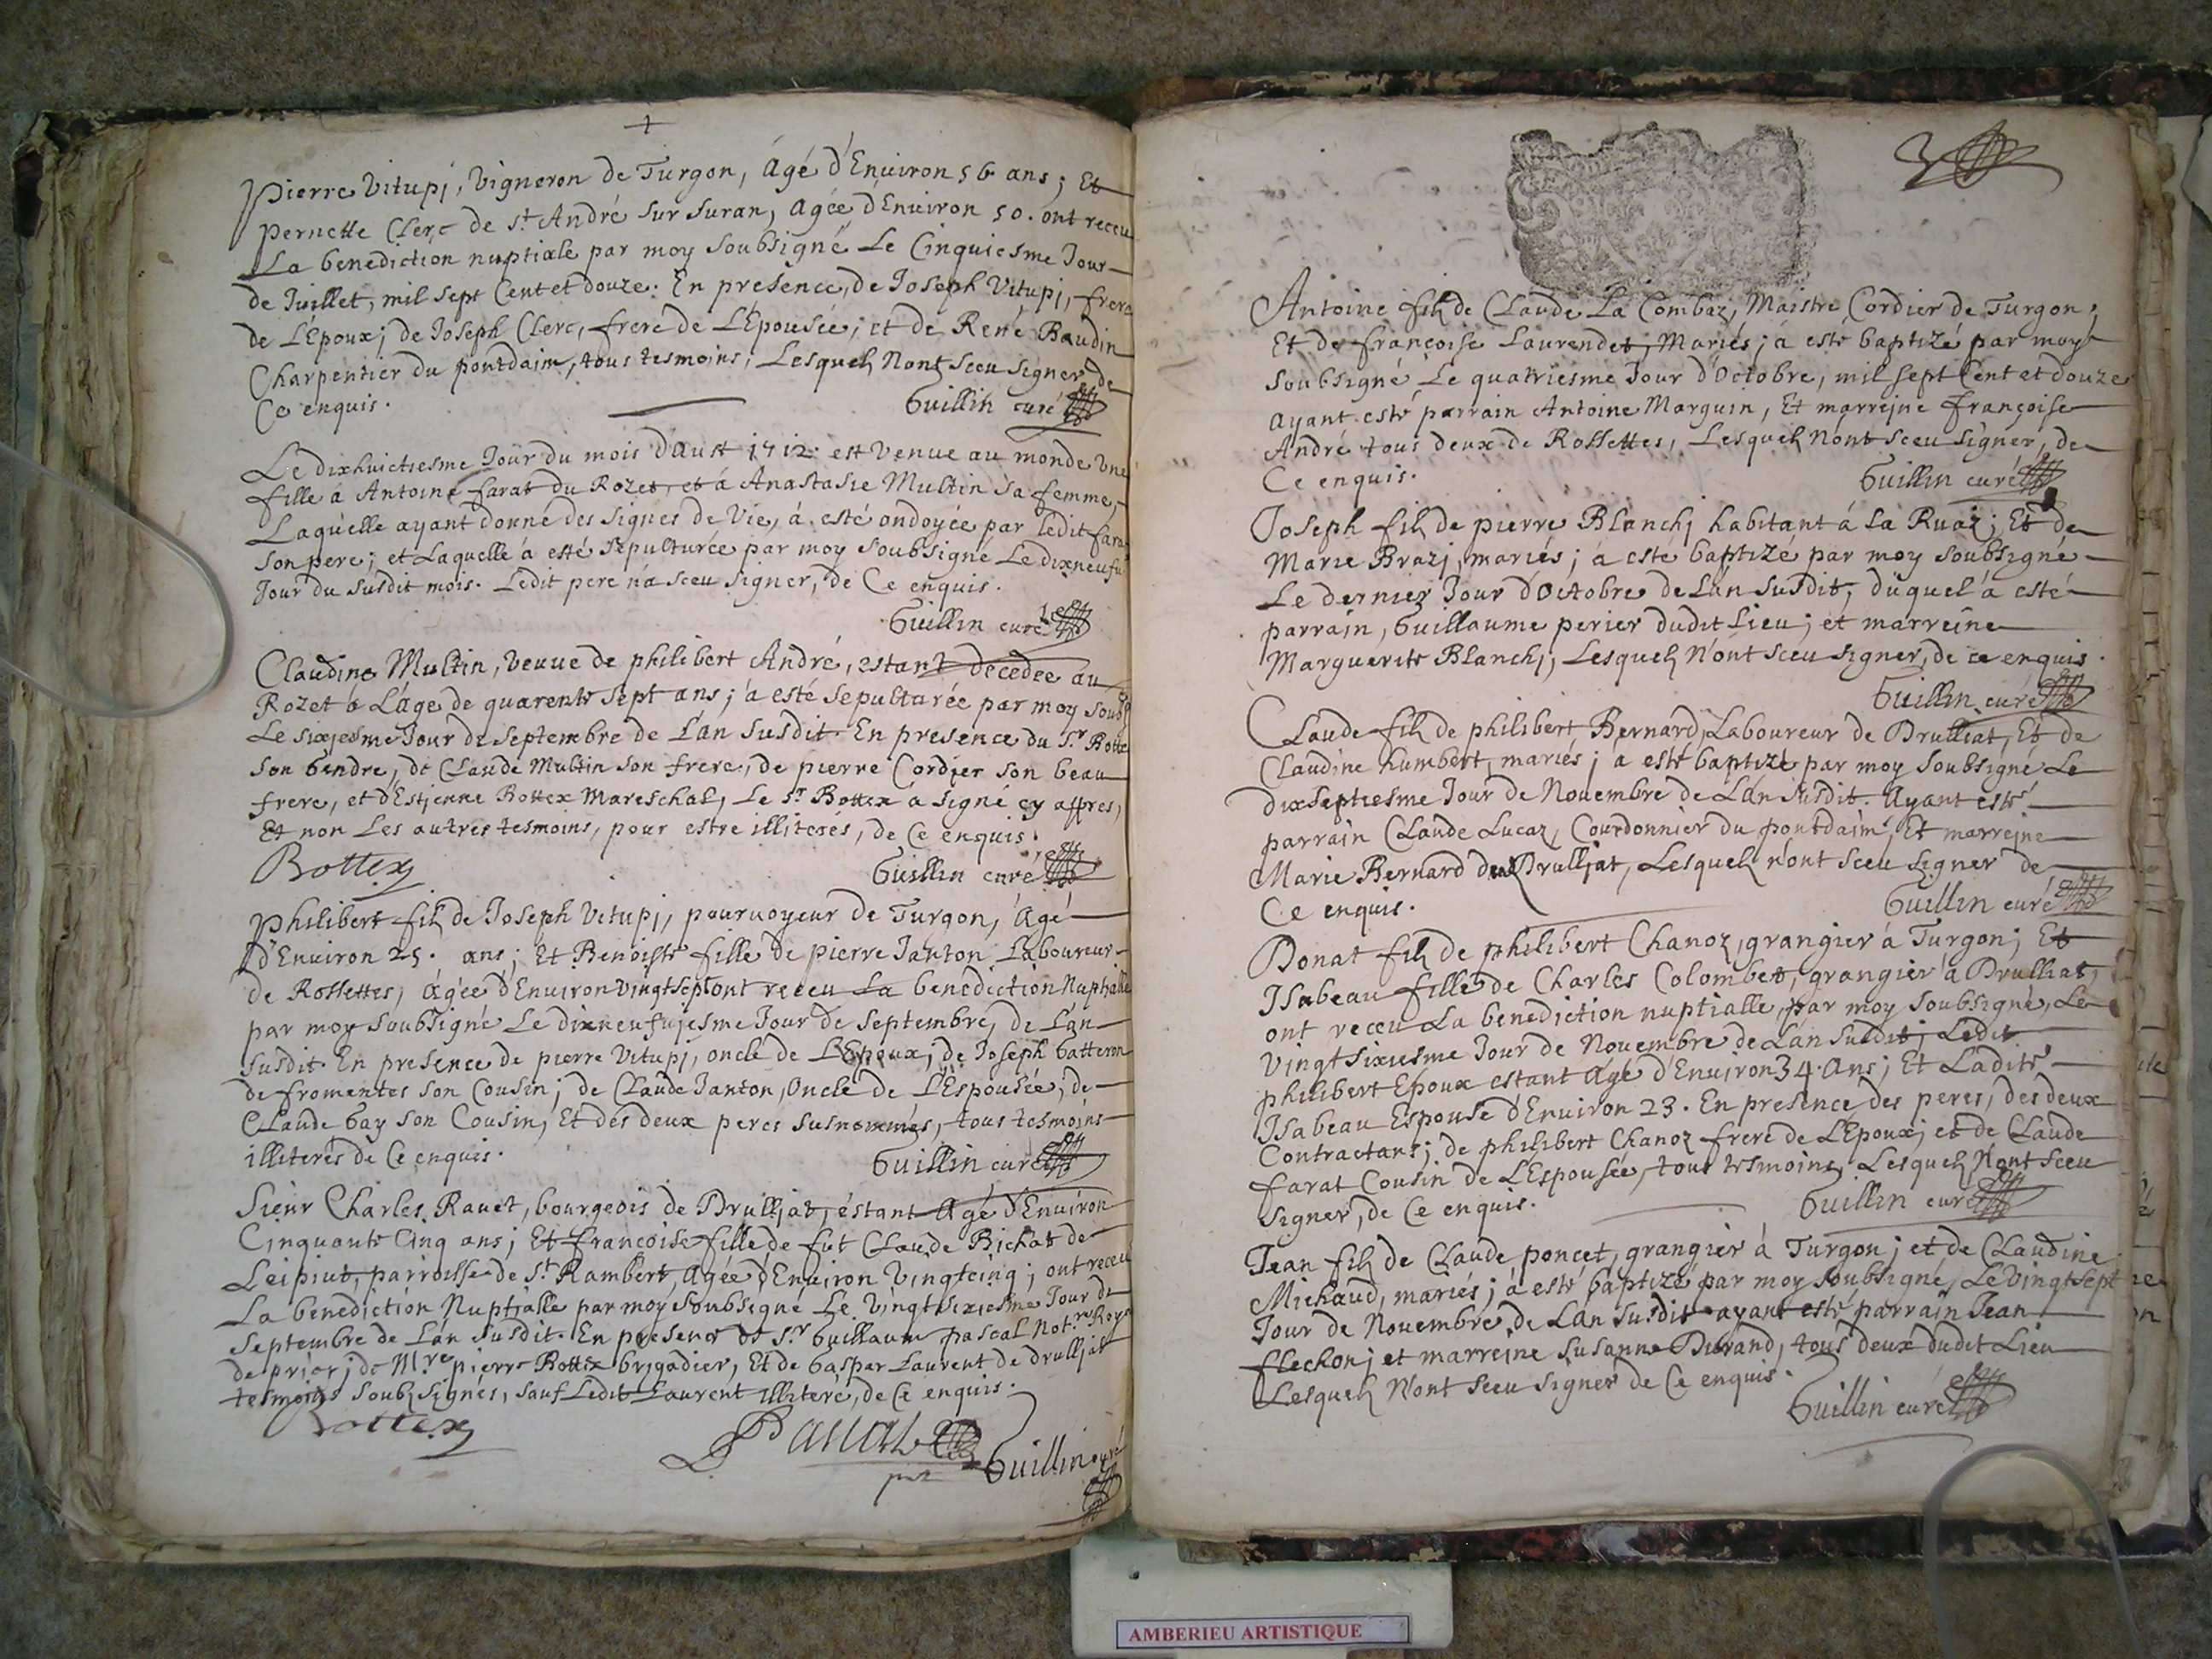 Pierre Vitupj, Vigneron de Turgon, Agé d'Enuiron 56 ans; Et
pernette Clerc de st. André sur suran, agée d'Enuiron 50. ont receu
La benediction nuptiale par moy soubsigné Le Cinquiesme Jour
de Juillet, mil sept Cent et douze. En presence, de Joseph Vitupj, frere
de L'Epoux; de Joseph Clerc, frere de L'Epousée; et de René Baudin
Charpentier du pontdaim, tous tesmoins; Lesquels Nont sceu signer de
Ce enquis. Guillin curé
Le dixhuictiesme Jour du mois d'Aust 1712. est venue au monde Une
fille à Antoine farat du Rozet, et à Anastasie Multin sa femme,
Laquelle ayant donné des signes de vie, à esté ondoyée par ledit fara
son pere; et Laquelle à esté sepulturée par moy soubsigné Le dixneufu
Jour du susdit mois. Ledit pere n'a sceu signer, de Ce enquis.
Guillin curé
Claudine Multin, veuue de philibert André, estant decedée au
Rozet à Lâge de quarente sept ans; à esté sepulturée par moy soub
Le sixiesme Jour de septembre de L'an susdit. En presence du Sr. Botte
son Gendre, de Claude Multin son frere, de pierre Cordier son beau
frere, et d'Estienne Bottex Mareschal, Le Sr. Bottex à signé cy appres,
Et non Les autres tesmoins, pour estre illiterés, de Ce enquis.
Bottex Guillin curé
Philibert fils de Joseph Vitupj, pouruoyeur de Turgon, Agé
d'Enuiron 25. ans; Et Benoiste fille de pierre Janton Laboureur
de Rossettes, âgée d'Enuiron vingtsept ont receu La benediction Nuptialle
par moy soubsigné Le dixneufujesme Jour de septembre, de L'an
susdit. En presence de pierre Vitupj, oncle de L'Epoux; de Joseph Gatteron
de fromentes son Cousin; de Claude Janton, Oncle de L'Espousée; de
Claude Gay son Cousin, Et des deux peres susnommés, tous tesmoins
illiterés de Ce enquis. Guillin curé
Sieur Charles Rauet, bourgeois de Drulljat, éstant Agé d'Enuiron
Cinquante Cinq ans; Et francoise fille de fut Claude Bichat de
Leipiut, parroisse de St. Rambert, agée d'Enuiron Vingtcinq; ont receu
La benediction Nuptialle par moy soubsigné Le Vingtsixiesme Jour de
septembre de L'an susdit. En presence de Sr. Guillaum pascal Notre. Roy
de prier; de Mre. pierre Bottex brigadier, Et de Gaspar Laurent de drulljat
tesmoins soubsignés, sauf Ledit Laurent illiteré, de Ce enquis.
Bottex Pascal Guillin curé
Antoine fils de Claude La Combaz, Maistre Cordier de Turgon;
Et de françoise Laurendet, Mariés; à esté baptizé par moy
soubsigné, Le quatriesme Jour d'Octobre, mil sept Cent et douze
ayant esté parrain Antoine Marguin, Et marrejne françoise
André tous deux de Rossettes, Lesquels Nont sceu signer, de
Ce enquis. Guillin curé
Joseph fils de pierre Blanchj habitant à la Ruaz; Et de
Marie Brazj, mariés; à esté baptizé par moy soubsigné
Le dernier Jour d'Octobre de L'an susdit, duquel à esté
parrain, Guillaume perier dudit Lieu; et marreine
Marguerite Blanchj, Lesquels N'ont sceu signer, de ce enquis.
Guillin curé
Claude fils de philibert Bernard, Laboureur de Drulliat, Et de
Claudine humbert, mariés; à esté baptizé par moy soubsigné Le
dixseptiesme Jour de Nouembre de L'an susdit. Ayant esté
parrain Claude Lucaz, Courdonnier du pontdaim, Et marrejne
Marie Bernard de Drulljat, Lesquels n'ont sceu signer de
Ce enquis. Guillin curé
Donat fils de philibert Chanoz, grangier à Turgon; Et
Isabeau fille de Charles Colombet, grangier à Drulliat,
ont receu La benediction nuptialle, par moy soubsigné, Le
vingtsixiesme Jour de Nouembre de Lan susdit; Ledit
philibert Epoux estant Agé d'Enuiron 34. Ans; Et Ladite
Isabeau Espouse d'Enuiron 23. En presence des peres, des deux
Contractans; de philibert Chanoz frere de L'Epoux; et de Claude
farat Cousin de L'Espousée, tous tesmoins, Lesquels Nont sceu
signer, de Ce enquis. Guillin curé
Jean fils de Claude poncet, grangier à Turgon; et de Claudine
Michaud, mariés; à esté baptizé par moy soubsigné, Le vingtsept
Jour de Nouembre, de Lan susdit ayant esté parrain Jean
flechon; et marrejne susanne Durand, tous deux dudit Lieu
Lesquels Nont sceu signer de Ce enquis.
Guillin curé
AMBERIEU ARTISTIQUE